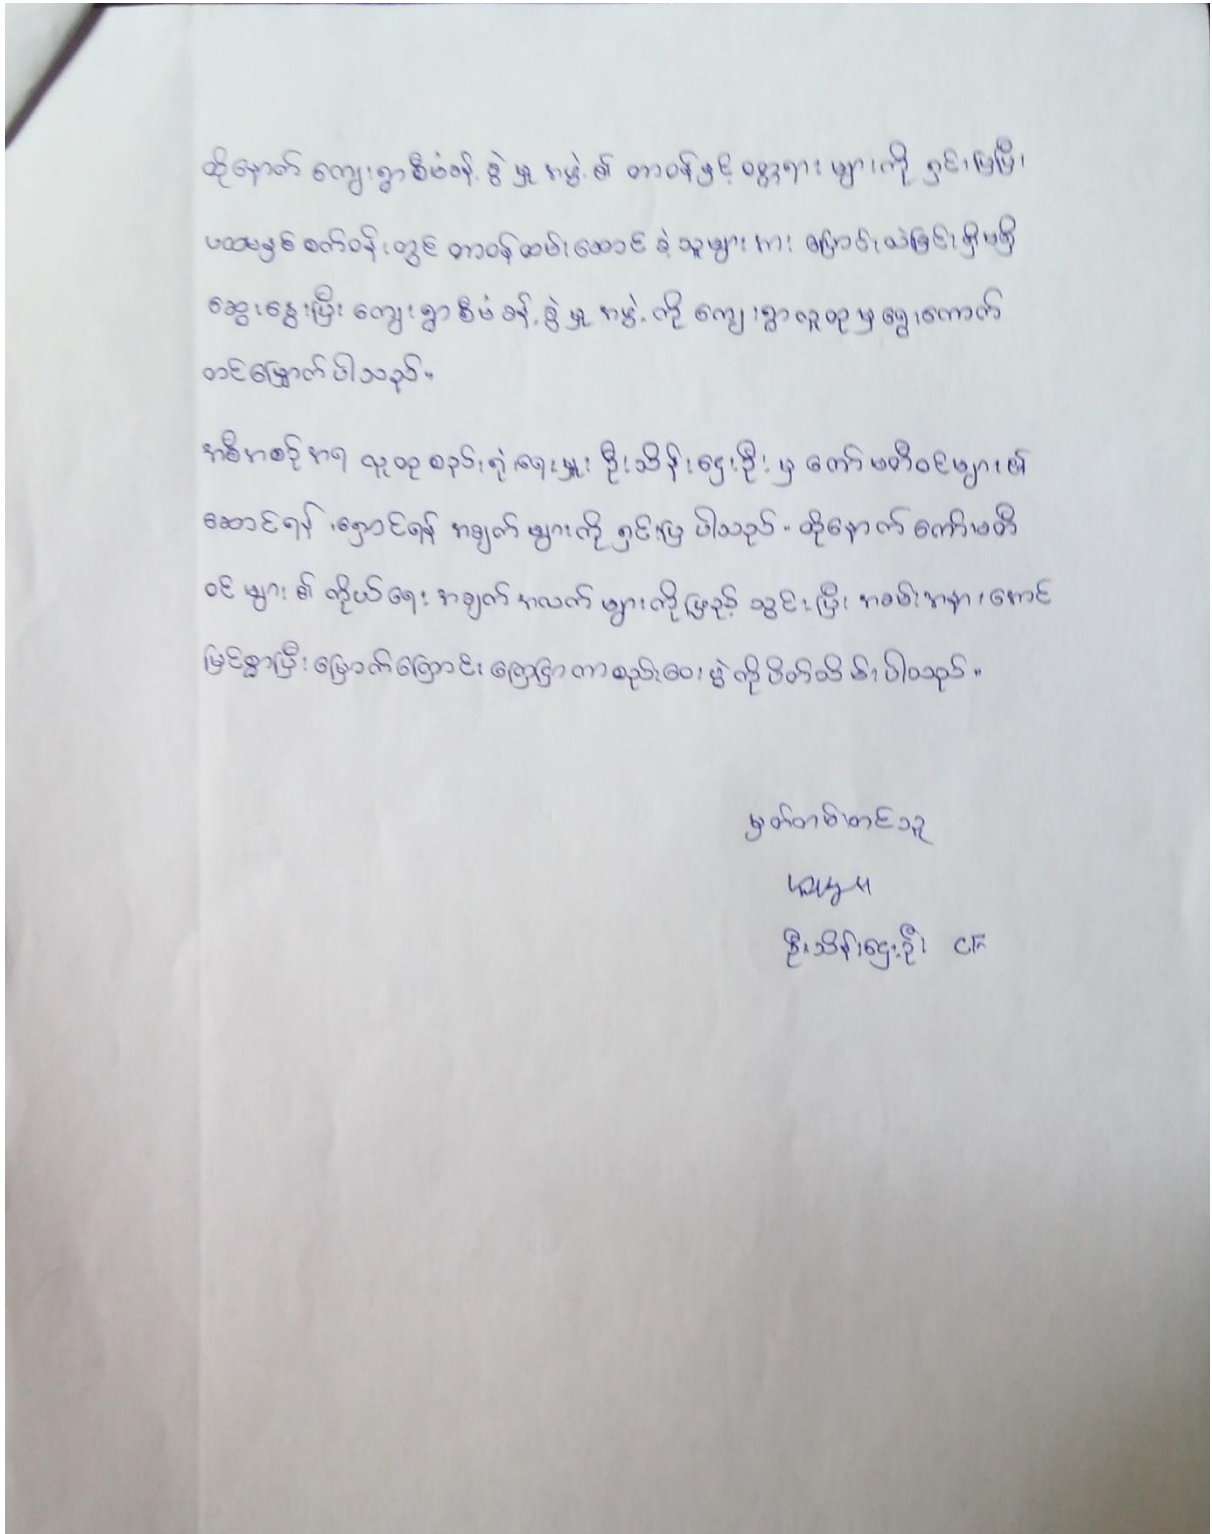 ထို့နောက် ကျေးရွာစီမံခန့်ခွဲမှုအဖွဲ့၏ တာဝန်နှင့် ဝတ္တရားများကို ရှင်းပြပြီး
ပထမနှစ်စက်ဝန်းတွင် တာဝန်ထမ်းဆောင်ခဲ့သူများအား ပြောင်းလဲခြင်းရှိမရှိ
ဆွေးနွေးပြီး ကျေးရွာစီမံခန့်ခွဲမှုအဖွဲ့ကို ကျေးရွာလူထုမှ ရွေးကောက်
တင်မြှောက်ပါသည်။
အစီအစဉ်အရ လူထုစည်းရုံးရေးမှူး ဦးသိန်းဌေးဦးမှ ကော်မတီဝင်များ၏
ဆောင်ရန်၊ရှောင်ရန် အချက်များကို ရှင်းပြပါသည်။ ထို့နောက် ကော်မတီ
ဝင်များ၏ ကိုယ်ရေးအချက်အလက်များကိုဖြည့်သွင်းပြီး အခမ်းအနားအောင်
မြင်စွာပြီးမြောက်ကြောင်း ကြေညာကာ စည်းဝေးပွဲကိုပိတ်သိမ်းပါသည်။
မှတ်တမ်းတင်သူ
ဦးသိန်းဌေးဦး CF